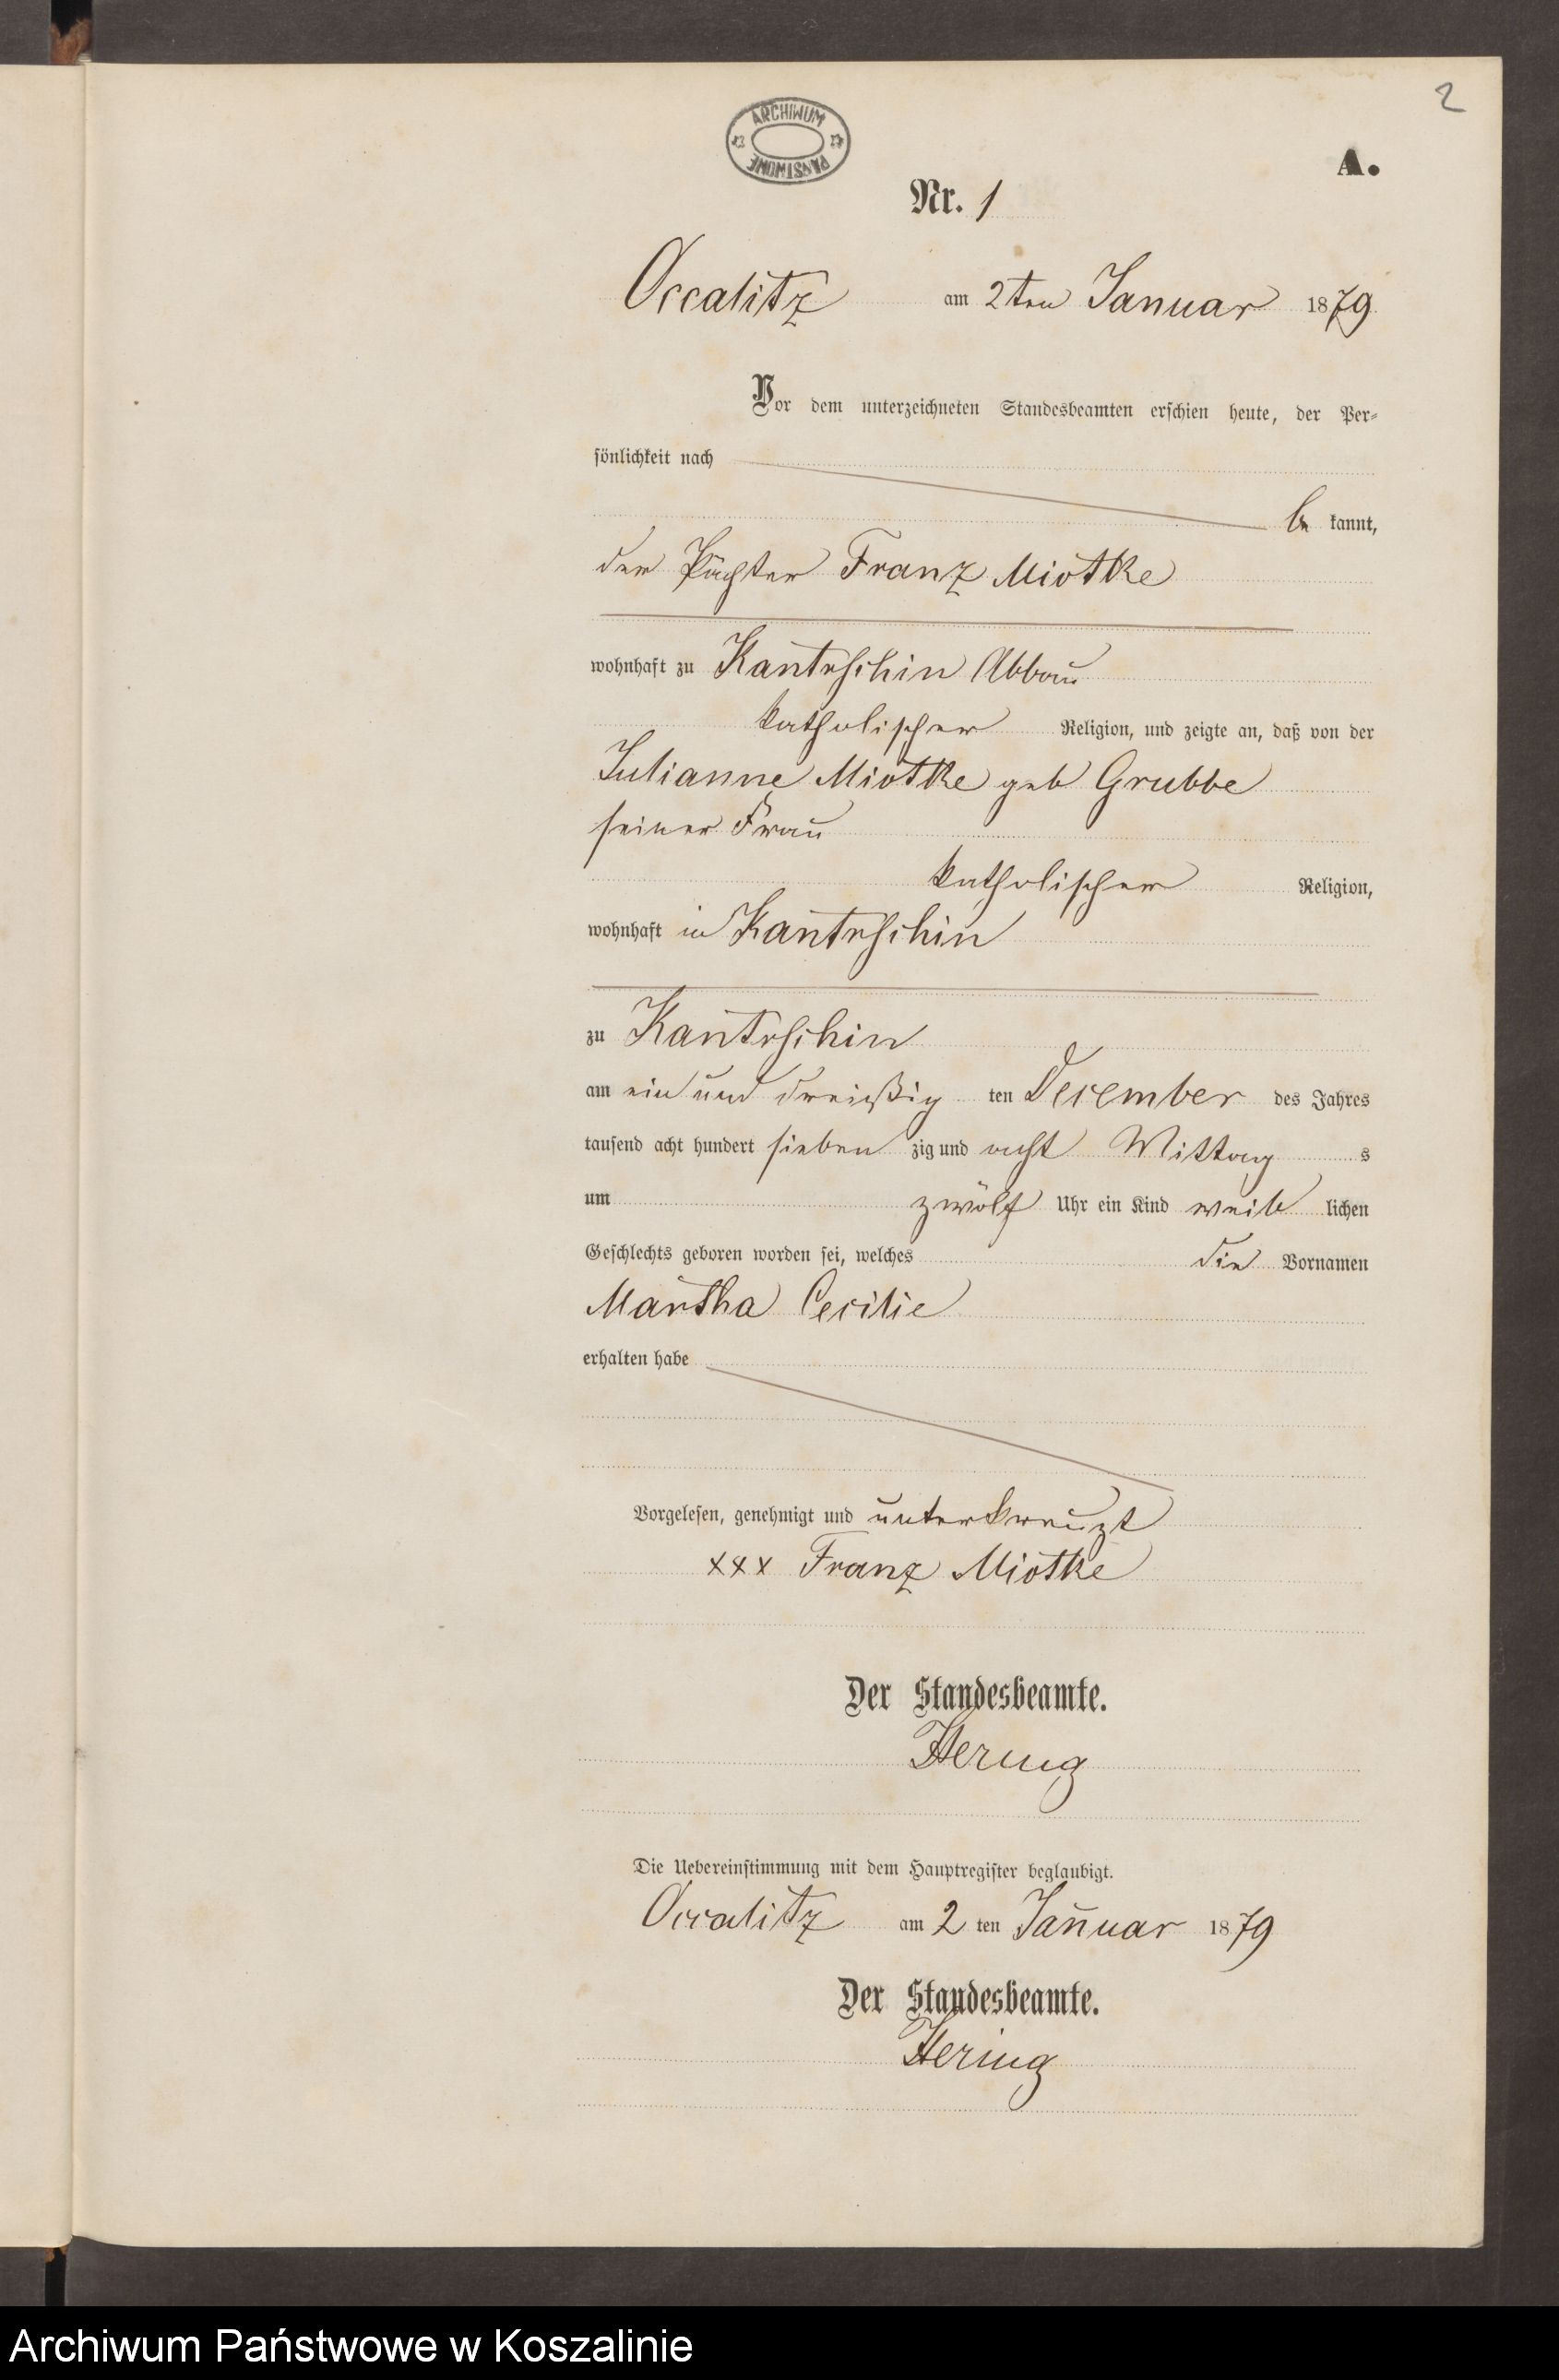 2
ARCHIWUM
PAŃSTWOWE
A.
Nr. 1
Occalitz am 2ten Januar 1879
Vor dem unterzeichneten Standesbeamten erschien heute, der Per-
sönlichkeit nach
be kannt,
der Pächter Franz Miotke
wohnhaft zu Kantrschin Abbau
katholischer Religion, und zeigte an, daß von der
Julianne Miotke geb Grubbe
seiner Frau
katholischer Religion,
wohnhaft in Kantrschin
zu Kantrschin
am ein und dreißig ten December des Jahres
tausend acht hundert sieben zig und acht Mittag s
um zwölf Uhr ein Kind weib lichen
Geschlechts geboren worden sei, welches die Vornamen
Martha Cecilie
erhalten habe
Vorgelesen, genehmigt und unterkreuzt
xxx Franz Miotke
Der Standesbeamte.
Hering
Die Uebereinstimmung mit dem Hauptregister beglaubigt.
Occalitz am 2 ten Januar 1879
Der Standesbeamte.
Hering
Archiwum Państwowe w Koszalinie